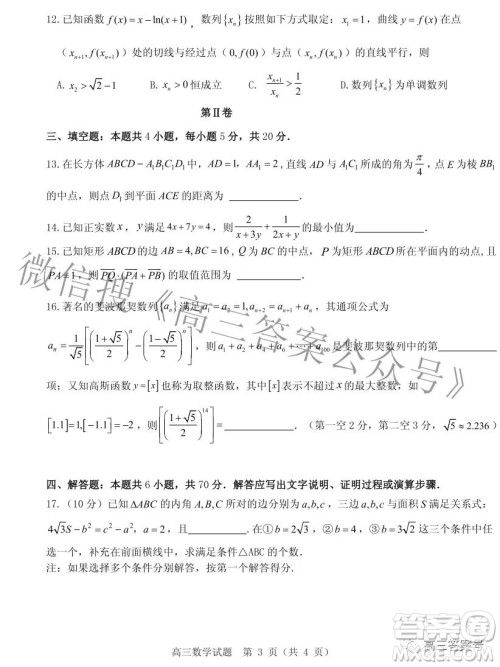 12.已知函数 f(x)=x-ln(x+1)，数列{xₙ}按照如下方式取定：x₁=1，曲线 y=f(x)在点
(xₙ₊₁,f(xₙ₊₁))处的切线与经过点(0,f(0))与点(xₙ,f(xₙ))的直线平行，则
A. x₂>√2-1 B. xₙ>0恒成立 C. xₙ₊₁/xₙ>1/2 D.数列{xₙ}为单调数列
第Ⅱ卷
三、填空题：本题共4小题，每小题5分，共20分．
13.在长方体 ABCD-A₁B₁C₁D₁中，AD=1，AA₁=2,直线 AD₁与 A₁C₁所成的角为π/4，点E为棱BB₁
的中点，则点D₁到平面ACE的距离为 ________.
14.已知正实数 x，y满足4x+7y=4，则 2/(x+3y)+1/(2x+y)的最小值为________.
15.已知矩形ABCD的边AB=4,BC=16,Q为BC的中点，P为矩形ABCD所在平面内的动点,且
=1，则PQ·(PA+PB)的取值范围为 ________.
16.著名的斐波那契数列{aₙ}满足a₁=a₂=1,aₙ₊₂=aₙ₊₁+aₙ，其通项公式为
aₙ=1/√5[((1+√5)/2)ⁿ-((1-√5)/2)ⁿ]，则a₁+a₂+a₄+a₆+⋯+a₁₀₀是斐波那契数列中的第________
项；又知高斯函数 y=[x]也称为取整函数，其中[x]表示不超过x的最大整数，如
[1.1]=1,[-1.1]=-2，则[((1+√5)/2)¹⁴]=________.（第一空2分，第二空3分，√5≈2.236）
四、解答题：本题共6小题，共70分．解答应写出文字说明、证明过程或演算步骤．
17.（10分）已知△ABC的内角A,B,C所对的边分别为a,b,c，三边a,b,c与面积S满足关系式：
4√3S-b²=c²-a²,a=2，且________，在①b=2√3，②b=2，③b=3√2这三个条件中任
选一个，补充在前面横线中，求满足条件△ABC的个数．
注：如果选择多个条件分别解答，按第一个解答得分．
高三数学试题 第 3 页（共 4 页）
微信搜《高三答案公众号》
答案圈
高三答案号